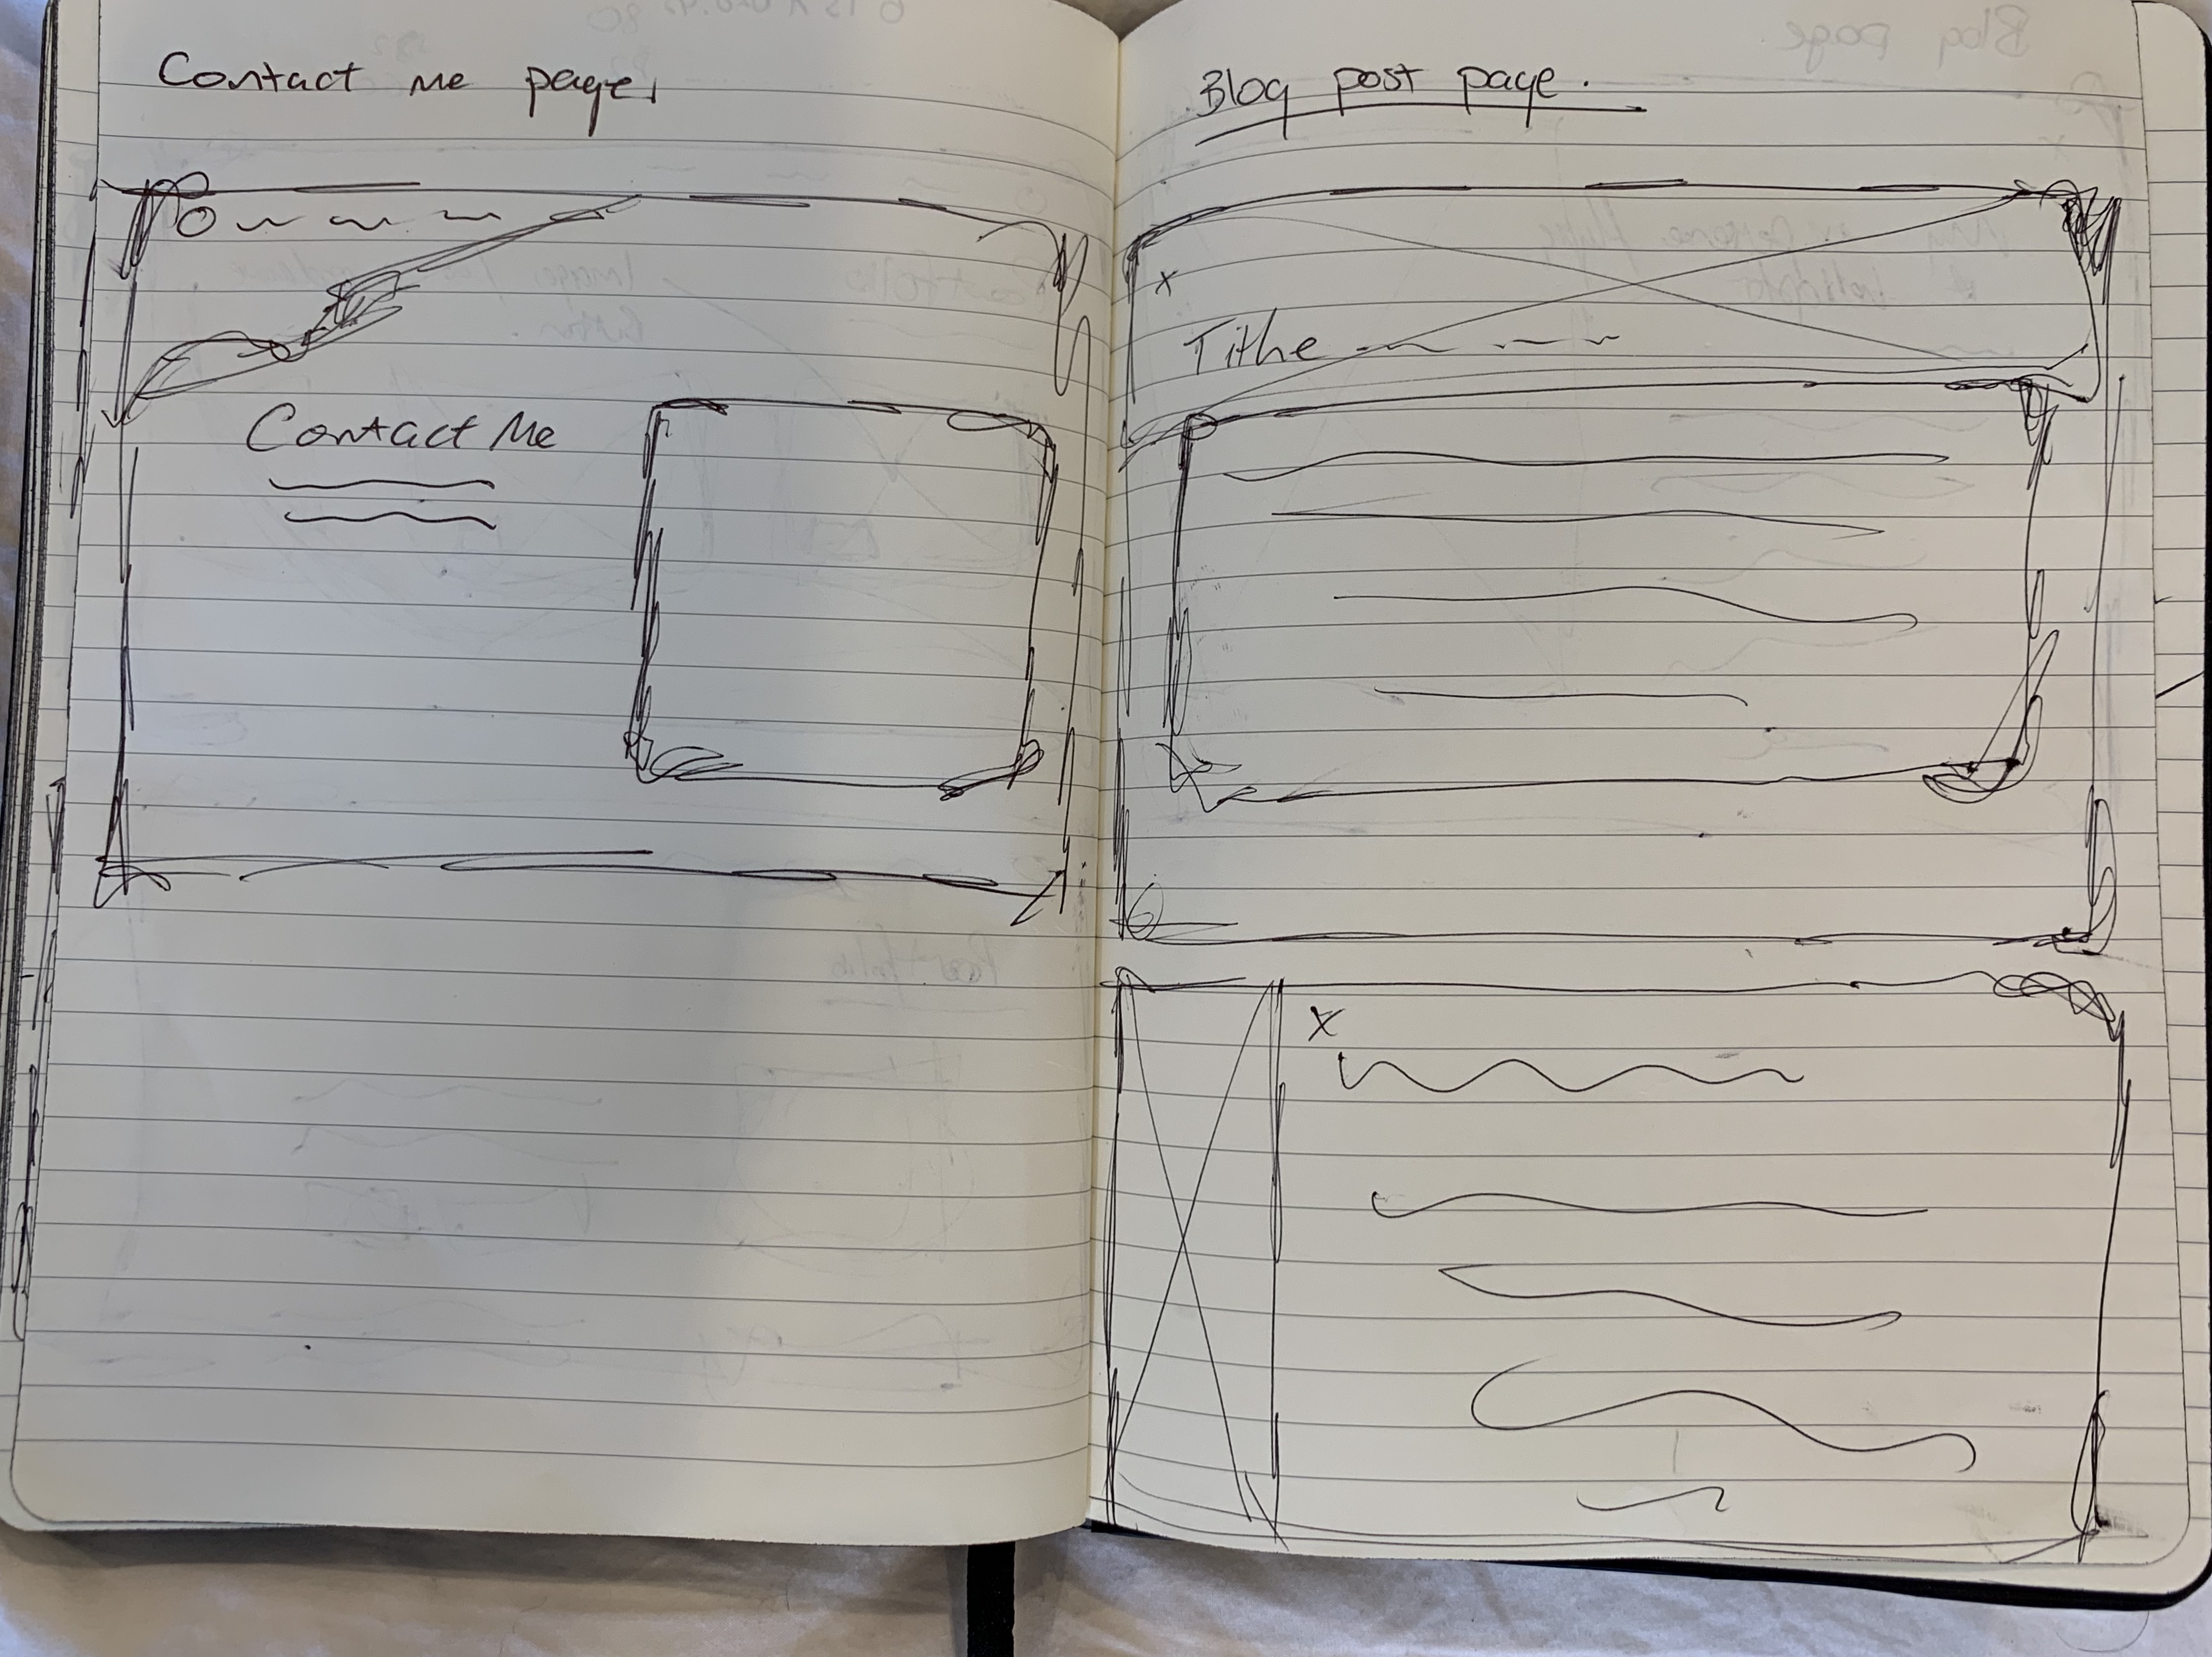 Contact me page.
Contact Me
Blog post page.
x
Tithe
x